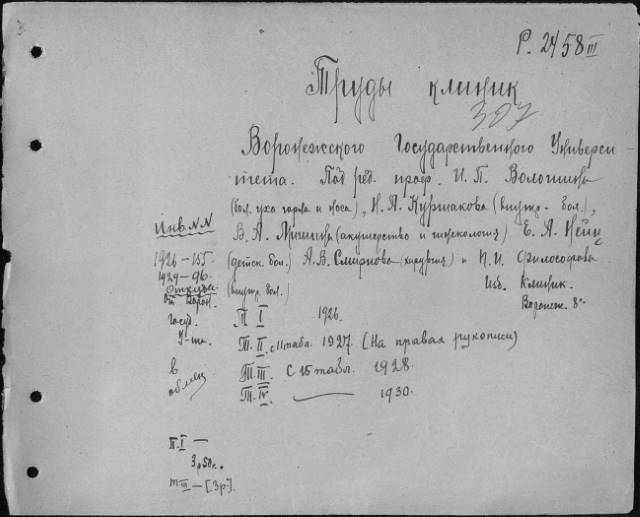 Р. 2458 III
Труды клиник
307
Воронежского Государственного Универси-
тета. Под ред. проф. И. П. Вологшина
(бол. уха горла и носа), Н. А. Куршакова (внутр. бол.),
В. А. Мишина (акушерство и гинекология) Е. А. Нейц
(детск. бол.) А. В. Смирнова (хирургия) и П. И. Философова
(внутр. бол.)
Изд. Клиник.
Воронеж. 8°.
Инв. N.N
1926 – 155.
1929 – 96.
Откуда:
от Ворон.
Госуд.
У-та.
в
обмен
Т. I 1926.
Т. II. с 11 табл. 1927. (На правах рукописи)
Т. III. С 15 табл. 1928.
Т. IV. 1930.
Т. I —
3р50к.
т III – [3р].